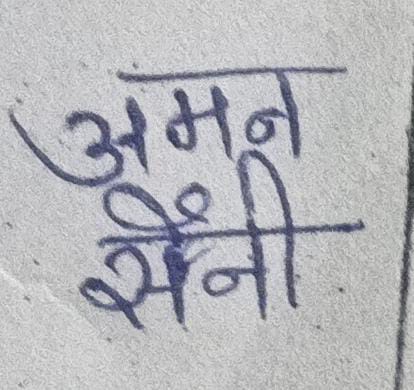 अमन
सैनी